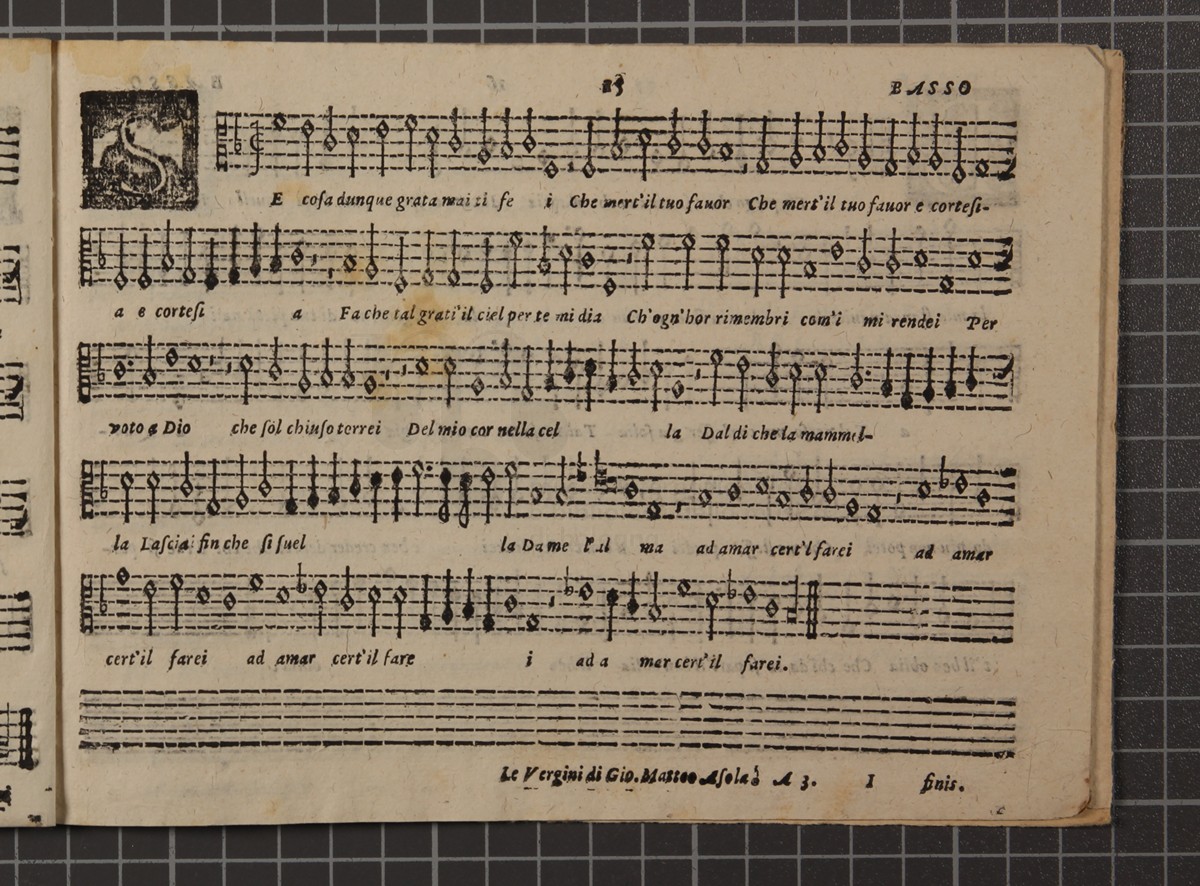 15 BASSO
SE cosa dunque grata mai ti fe i Che mert'il tuo fauor Che mert'il tuo fauor e cortesi-
a e cortesi a Fa che tal grati'il ciel per te mi dia Ch'ogn'hor rimembri com'i mi rendei Per
voto a Dio che sol chiuso terrei Del mio cor nella cel la Dal di che la mammel-
la Lascia' fin che si suel la Da me l'al ma ad amar cert'il farei ad amar
cert'il farei ad amar cert'il fare i ad a mar cert'il farei.
Le Vergini di Gio. Matteo Asola à A 3. I finis.